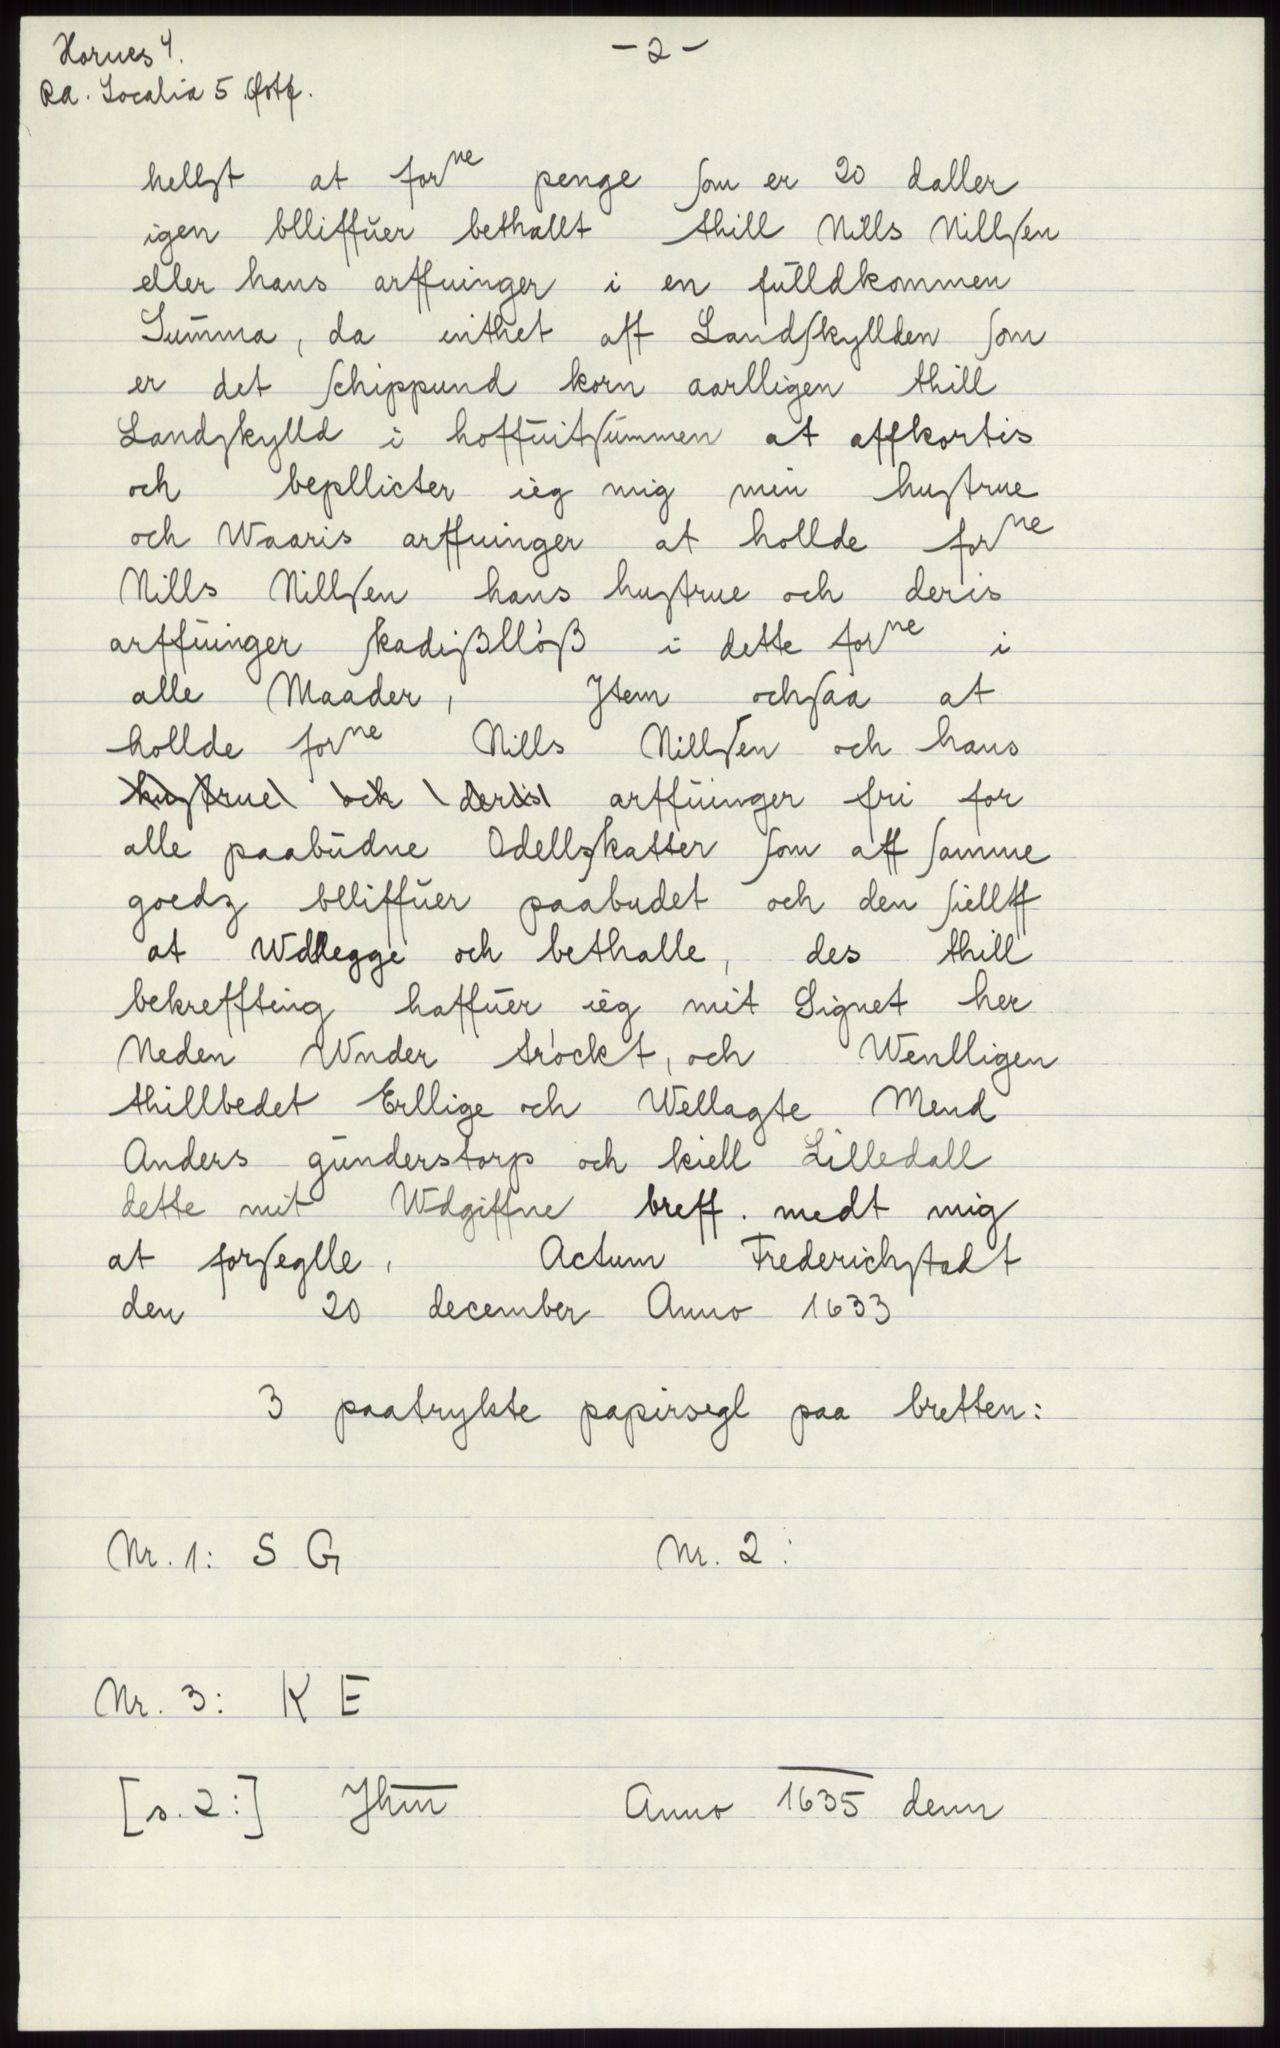 Hornes 4.
- 2 -
RA. Localia 5 Østf.
hellst at forne penge som er 20 daller
igen blliffŭer bethallt thill Nills Nillsen
eller hans arffuinger i en fŭlldkommen
Sŭmma, da inthet aff Landskyllden som
er det schippund korn aarlligen thill
Landskylld i hoffŭitsŭmmen at affkortis
och bepllicter ieg mig min hustrue
och Waaris arffuinger at hollde forne
Nills Nillsen hans hustrue och deris
arffŭinger skadißllöß i dette forne i
alle Maader, Jtem ochsaa at
hollde forne Nills Nillsen och hans
hustrue och deris arffŭinger fri for
alle paabŭdne Odellskatter som aff samme
goedz blliffŭer paabudet och den siellff
at Wdllegge och bethalle, des thill
bekreffting haffŭer ieg mit Signet her
Neden Wnder tröckt, och Wenlligen
thillbedet Erllige och Wellagte Mend
Anders gŭnderstorp och kiell Lilledall
dette mit Wdgiffne breff. medt mig
at forseglle, Actum Frederichstadt
den 20 december Anno 1633
3 paatrykte papirsegl paa bretten:
Nr. 1: S G Nr. 2:
Nr. 3: K E
[s. 2:] Jhm Anno 1635 denn